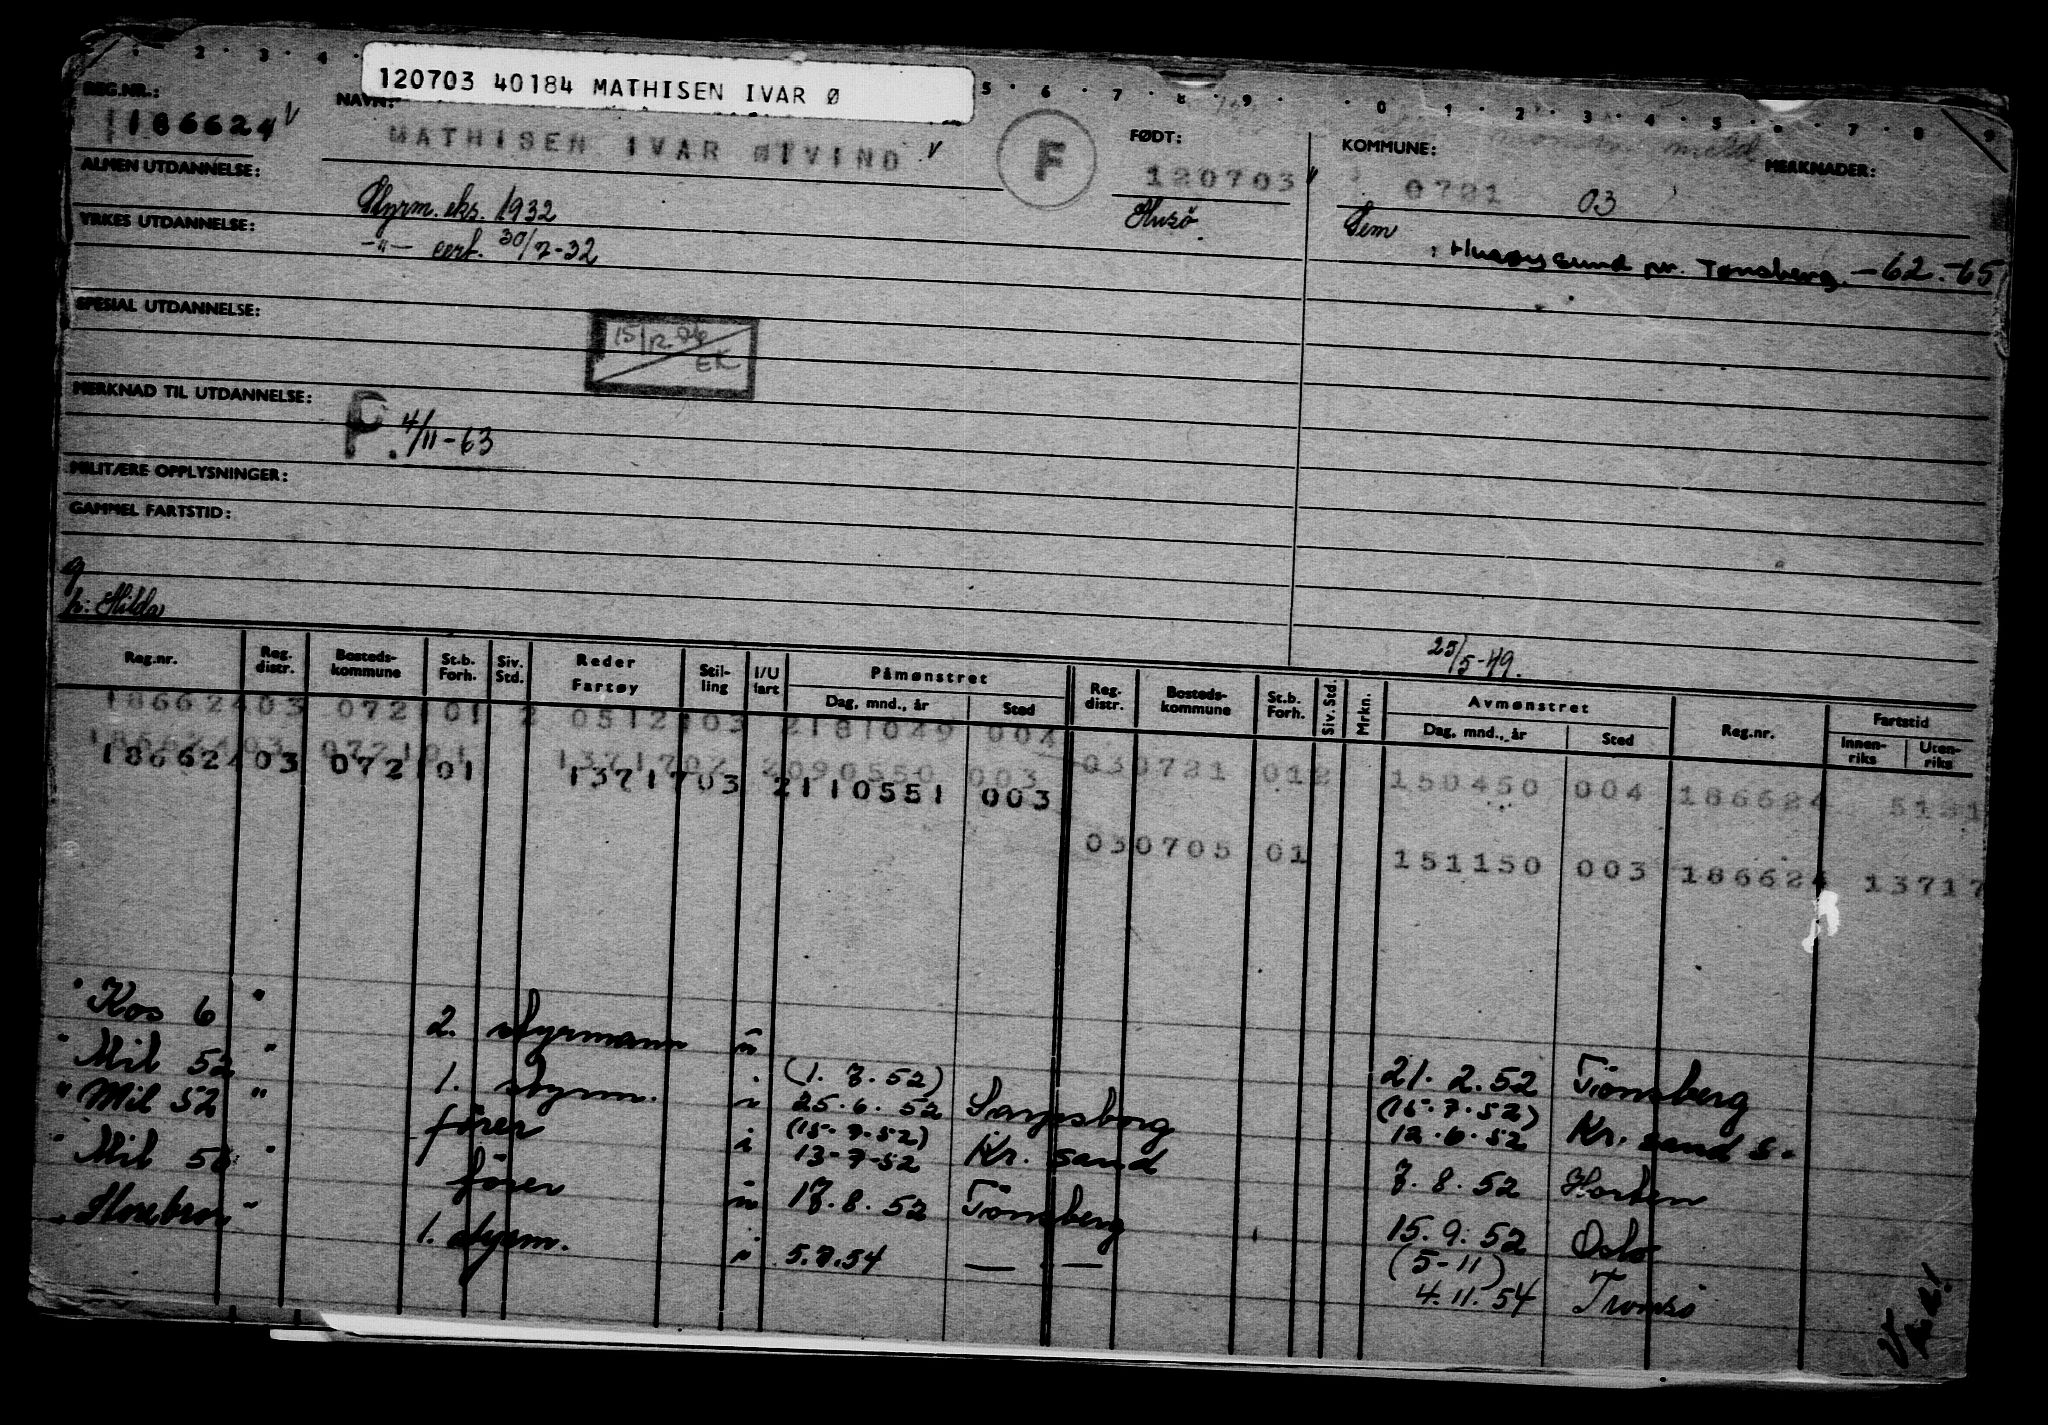 120703 40184 MATHISEN IVAR Ø
REG.NR.:
186624
NAVN:
MATHISEN IVAR ØIVIND
F
FØDT:
120703
Husö.
KOMMUNE:
0721 03
MERKNADER:
Sem
Husøysund pr. Tønsberg. -62.-65
ALMEN UTDANNELSE:
Styrm. eks. 1932
YRKES UTDANNELSE:
-"- cert. 30/7-32
SPESIAL UTDANNELSE:
15/12.06
EK
MERKNAD TIL UTDANNELSE:
P. 4/11-63
MILITÆRE OPPLYSNINGER:
GAMMEL FARTSTID:
g
h: Hilda
25/5-49.
Reg.nr. Reg. distr. Bosteds-kommune St.b. Forh. Siv. Std. Reder Fartøy Stil-ling I/U fart Påmønstret Dag, mnd., år Sted Reg. distr. Bosteds-kommune St.b. Forh. Siv. Std. Mrkn. Avmønstret Dag, mnd., år Sted Reg.nr. Fartstid Innen-riks Uten-riks
186624 03 0721 01 2 0512 103 2 181049 004
186624 03 0721 01 1371702 2 090550 003 03 0721 01 2 150450 004 186624 5131
186624 03 0721 01 1371703 2 110551 003
03 0705 01 151150 003 186624 13717
"Kos 6" 2. styrmann u 21. 2. 52 Tönsberg
"Mil 52" 1. styrm. i (1. 7. 52) 25. 6. 52 Sarpsborg (15.7.52) 12.6.52 Kr. sand S.
"Mil 52" förer i (15.7.52) 13-7-52 Kr. sand 7. 8. 52 Horten
"Mil 56" förer u 17. 8. 52 Tönsberg 15. 9. 52 Oslo
"Horebron" 1. styrm. i 5.7.54 — " — (5-11) 4. 11. 54 Tromsö